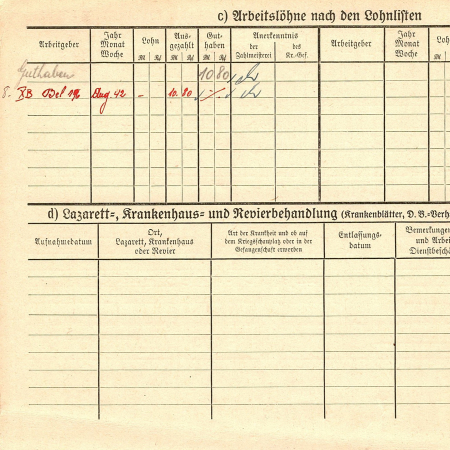 c) Arbeitslöhne nach den Lohnlisten
Arbeitgeber Jahr Monat Woche Lohn Ausgezahlt Guthaben Anerkenntnis der Zahlmeisterei des Kr.-Gef. Arbeitgeber Jahr Monat Woche
RM Rpf RM Rpf RM Rpf
Guthaben 10 80
XB Aug. 42 - 10. 80
d) Lazarett-, Krankenhaus- und Revierbehandlung (Krankenblätter, D. B.-Verh
Aufnahmedatum Ort, Lazarett, Krankenhaus oder Revier Art der Krankheit und ob auf dem Kriegsschauplatz oder in der Gefangenschaft erworben Entlassungsdatum Bemerkungen und Arbei Dienstbeschä